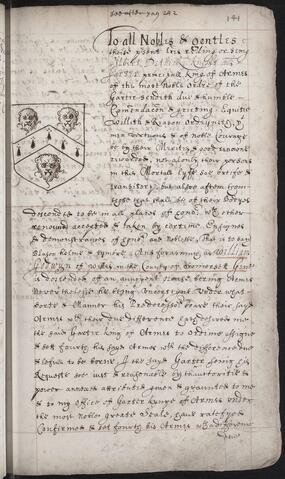 see after pag 242
141
To all Nobles & Gentles
these present lrs reding or seing
Gilbert Dethick Knight als
Garter principall king of Armes
of the most Noble Order of the
Garter sendeth due & humble
Comendacon & greting Equitie
willeth & Reason ordeyneth yt
men vertuous & of noble Courage
be by their Merites & good renowne
rewarded, not alonly their persons
in this Mortall lyfe soe breife &
transitory, but also after them
those that shall be of their Bodyes
descended to be in all places of honor wth other
renowned accepted & taken by certeine Ensignes
& demonstracons of honor and noblesse, that is to say
Blazon helme & tymbre. And forasmuch as William
in the County of Somerset Gent
is descended of an auncyent house bering Armes
Neverthelesse he being uncertaine under what
sorte & Maner his Predecessors bare their sayd
Armes wth their due difference hath desired me
the said Garter king of Armes to ordeine assigne
& sett fourth his sayd Armes with the difference due
& lefull to be borne I the sayd Garter seeing his
Requeste soe iust & reasonable by thauctoritie &
power annexed attributed given & graunted to me
& to my office of Garter kinge of Armes under
the most noble greate Seale, have ratefyed
Confirmed & set fourth his Armes & Difference